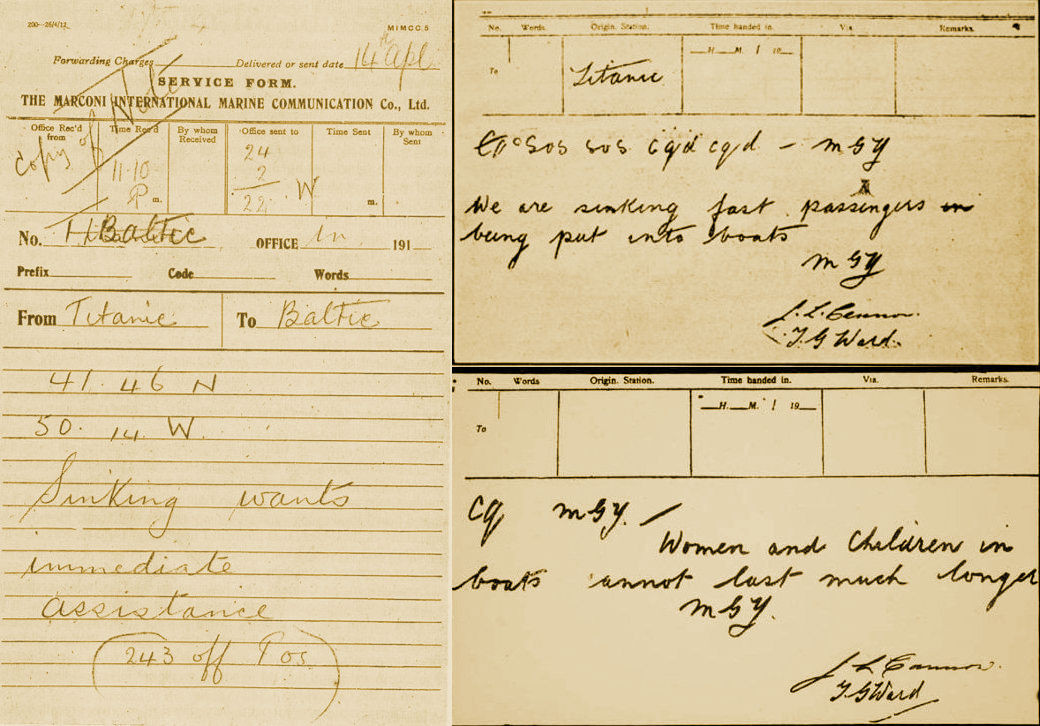 200--26/4/12.
M I M C C. 5
Copy of Note
Forwarding Charges
Delivered or sent date 14th Apl.
SERVICE FORM.
THE MARCONI INTERNATIONAL MARINE COMMUNICATION Co., Ltd.
Office Rec'd from
Time Rec'd
By whom Received
Office sent to
Time Sent
By whom Sent
11.10
P m.
24
2
22 W
m.
No. Baltic OFFICE 191
Prefix Code Words
From Titanic To Baltic
41. 46 N
50. 14. W.
Sinking wants
immediate
assistance
(243 off Pos)
No. Words. Origin. Station. Time handed in. Via. Remarks.
To
Titanic
H. M. 19
Sos sos cqd cqd - MGY
We are sinking fast passengers in
being put into boats
MGY
T. G Ward.
No. Words Origin. Station. Time handed in. Via. Remarks.
To
H. M. 19
Cq MGY.
Women and Children in
boats annot last much longer
MGY.
T G Ward